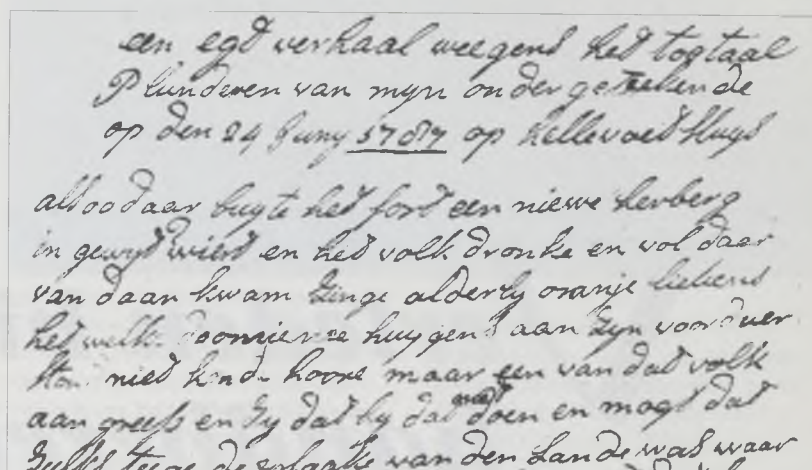 een egt verhaal weegens het togtaal
Plunderen van myn onder getekende
op den 24 Juny 1787 op Hellevoet Sluys
alsoo daar buyte het fort een niewe herberg
in gewyt wiert en het volk dronke en vol daar
van daan kwam zinge alderly oranje liekens
het welk doomierse huygens aan zyn voor duer
niet hoore maar een van dat volk
aan greep en zy dat hy dat most doen en mogt dat
zulks tege de van den Lande was waar